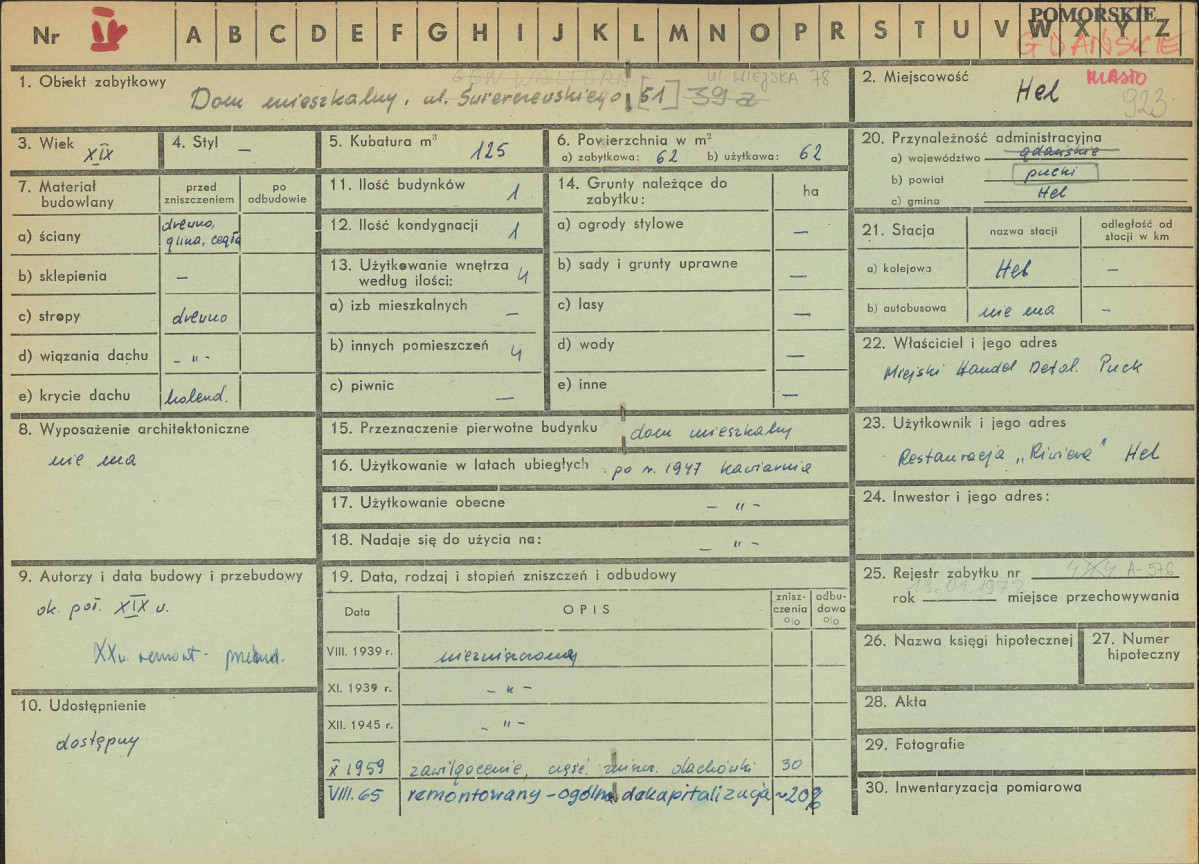 Nr IV A B C D E F G H I J K L M N O P R S T U V W X Y Z
POMORSKIE
GDAŃSKIE
1. Obiekt zabytkowy
GEN. WALTERA
ul. WIEJSKA 78
Dom mieszkalny, ul. Świerczewskiego [51] 39a
2. Miejscowość
MIASTO
Hel
923
3. Wiek XIX
4. Styl –
5. Kubatura m³ 125
6. Powierzchnia w m²
a) zabytkowa: 62 b) użytkowa: 62
20. Przynależność administracyjna
a) województwo gdańskie
b) powiat pucki
c) gmina Hel
7. Materiał budowlany
przed zniszczeniem
po odbudowie
a) ściany drewno, glina, cegła
b) sklepienia –
c) stropy drewno
d) wiązania dachu – " –
e) krycie dachu holend.
11. Ilość budynków 1
12. Ilość kondygnacji 1
13. Użytkowanie wnętrza według ilości: 4
a) izb mieszkalnych –
b) innych pomieszczeń 4
c) piwnic –
14. Grunty należące do zabytku:
ha
a) ogrody stylowe –
b) sady i grunty uprawne –
c) lasy –
d) wody –
e) inne –
21. Stacja
nazwa stacji
odległość od stacji w km
a) kolejowa Hel –
b) autobusowa nie ma –
22. Właściciel i jego adres
Miejski Handel Detal. Puck
8. Wyposażenie architektoniczne
nie ma
15. Przeznaczenie pierwotne budynku dom mieszkalny
16. Użytkowanie w latach ubiegłych po r. 1947 kawiarnia
17. Użytkowanie obecne – " –
18. Nadaje się do użycia na: – " –
23. Użytkownik i jego adres
Restauracja „Riwiera" Hel
24. Inwestor i jego adres:
9. Autorzy i data budowy i przebudowy
ok. poł. XIX w.
XX w. remont - przebud.
10. Udostępnienie
dostępny
19. Data, rodzaj i stopień zniszczeń i odbudowy
Data
OPIS
zniszczenia %
odbudowa %
VIII. 1939 r. niezniszczony
XI. 1939 r. – " –
XII. 1945 r. – " –
X 1959 zawilgocenie, część. zniszcz. dachówki 30
VIII. 65 remontowany – ogólna dekapitalizacja ~20%
25. Rejestr zabytku nr A-576
rok miejsce przechowywania
26. Nazwa księgi hipotecznej
27. Numer hipoteczny
28. Akta
29. Fotografie
30. Inwentaryzacja pomiarowa